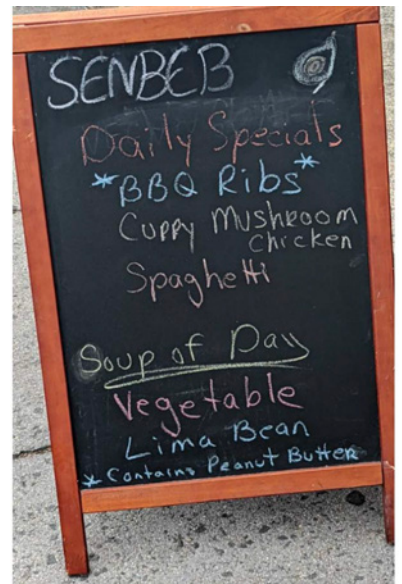 SENBEB
Daily Specials
*BBQ Ribs*
Curry Mushroom
Chicken
Spaghetti
Soup of Day
Vegetable
Lima Bean
* Contains Peanut Butter